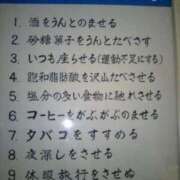 1. 酒をうんとのませる
2. 砂糖菓子をうんとたべさす
3. いつも座らせる(運動不足にする)
4. 飽和脂肪酸を沢山たべさせる
5. 塩分の多い食物に馴れさせる
6. コーヒーをがぶがぶのませる
7. タバコをすすめる
8. 夜深しをさせる
9. 休暇旅行をさせぬ